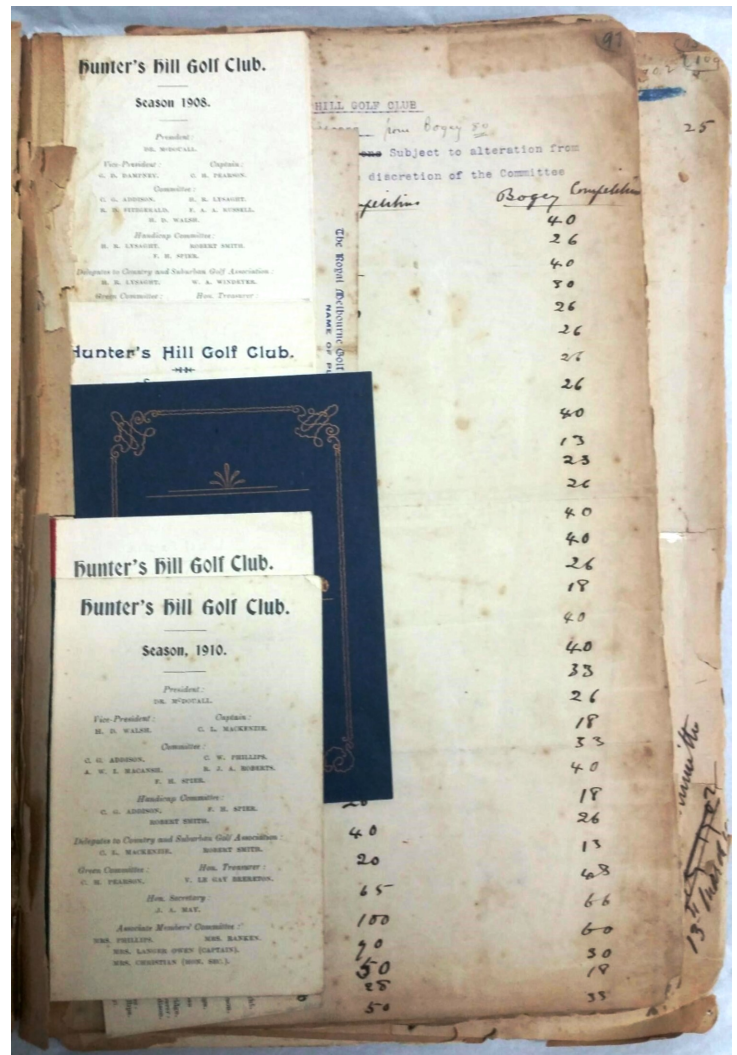 Hunter's Hill Golf Club.
Season 1908.
President:
DR. McDOUALL.
Vice-President: Captain:
G. D. DAMPNEY. C. H. PEARSON.
Committee:
C. G. ADDISON. H. R. LYSAGHT.
R. D. FITZGERALD. F. A. A. RUSSELL.
H. D. WALSH.
Handicap Committee:
H. R. LYSAGHT. ROBERT SMITH.
F. H. SPIER.
Delegates to Country and Suburban Golf Association:
H. R. LYSAGHT. W. A. WINDEYER.
Green Committee: Hon. Treasurer:
Hunter's Hill Golf Club.
Hunter's Hill Golf Club.
Hunter's Hill Golf Club.
Season, 1910.
President:
DR. McDOUALL.
Vice-President: Captain:
H. D. WALSH. C. L. MACKENZIE.
Committee:
C. G. ADDISON. C. W. PHILLIPS.
A. W. I. MACANSH. R. J. A. ROBERTS.
F. H. SPIER.
Handicap Committee:
C. G. ADDISON. F. H. SPIER.
ROBERT SMITH.
Delegates to Country and Suburban Golf Association:
C. L. MACKENZIE. ROBERT SMITH.
Green Committee: Hon. Treasurer:
C. H. PEARSON. V. LE GAY BRERETON.
Hon. Secretary:
J. A. MAY.
Associate Members' Committee:
MRS. PHILLIPS. MRS. RANKEN.
MRS. LANGER OWEN (CAPTAIN).
MRS. CHRISTIAN (HON. SEC.).
The Royal Melbourne Golf
NAME OF
91
HILL GOLF CLUB
from Bogey 80
Subject to alteration from
discretion of the Committee
Bogey Competition
40
26
40
30
26
26
26
26
40
13
23
26
40
40
26
18
40
40
33
26
18
33
40
18
20 26
40 13
20 48
65 66
100 60
90 30
50 18
28 33
50
25
13th March